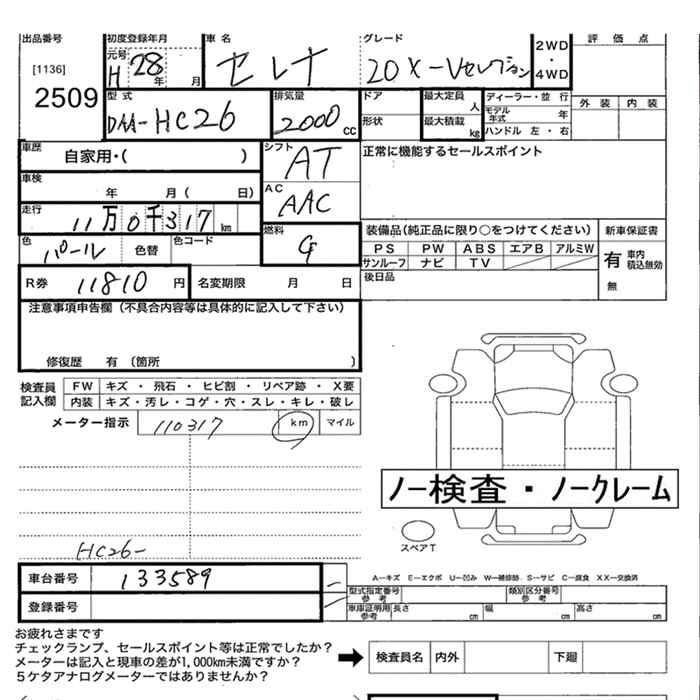 出品番号 初度登録年月 車名 グレード 2WD・4WD 評価点
[1136] 元号 H 28年 月 セレナ 20X-Vセレクション
2509 型式 DAA-HC26 排気量 2000cc ドア 最大定員 人 ディーラー・並行 外装 内装
形状 最大積載 kg モデル年式 年
ハンドル 左・右
車歴 自家用・( ) シフト AT 正常に機能するセールスポイント
車検 年 月( 日) AC AAC
走行 11万0千317km 燃料 G 装備品(純正品に限り○をつけてください) 新車保証書
色 パール 色替 色コード PS PW ABS エアB アルミW 有 車内積込無効
サンルーフ ナビ TV
R券 11810円 名変期限 月 日 後日品 無
注意事項申告欄(不具合内容等は具体的に記入して下さい)
修復歴 有(箇所 )
検査員 FW キズ・飛石・ヒビ割・リペア跡・X要
記入欄 内装 キズ・汚レ・コゲ・穴・スレ・キレ・破レ
メーター指示 110317 km マイル
ノー検査・ノークレーム
スペアT
HC26-
車台番号 133589 A-キズ E-エクボ U-凹み W-補修跡 S-サビ C-腐食 XX-交換済
型式指定番号 参考 類別区分番号 参考
登録番号 車庫証明用 参考 長さ cm 幅 cm 高さ cm
お疲れさまです
チェックランプ、セールスポイント等は正常でしたか?
メーターは記入と現車の差が1,000km未満ですか? 検査員名 内外 下廻
5ケタアナログメーターではありませんか?